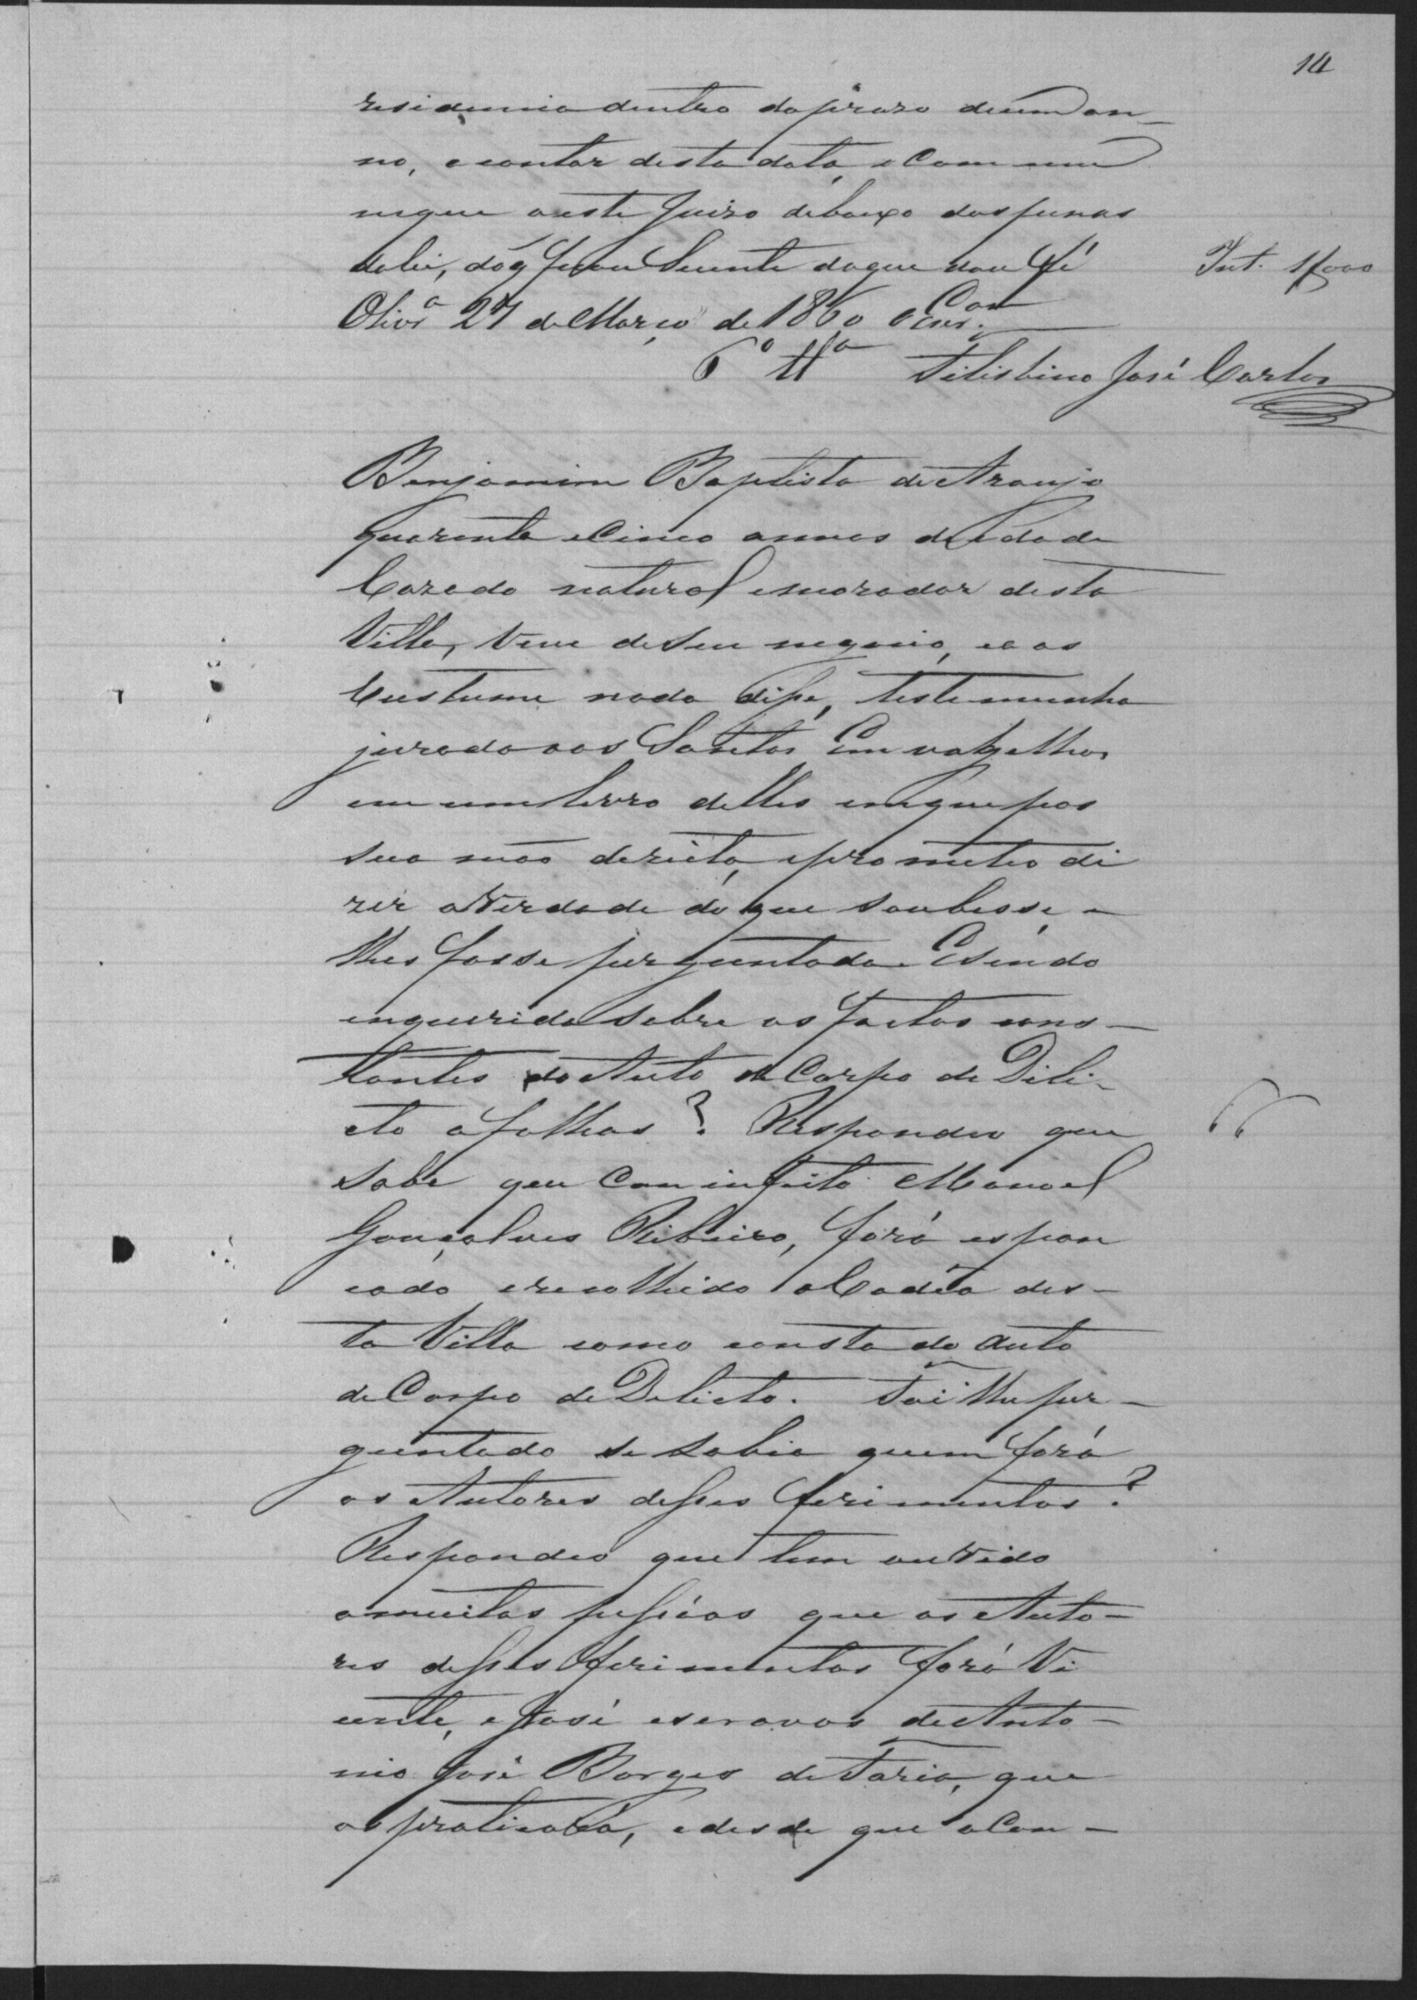 14
residencia dentro do prazo de um an-
no, a contar desta data, e Commu
nique a este Juizo debaixo das penas
da lei, do q ficou Sciente do que dou fé
Int. 1$000
Olivrª 27 de Março de 1860 O Escr.
6º Tª Felisbino José Carlos
Benjamim Baptista de Araujo
quarenta e Cinco annos de Idade
Cazado natural e morador desta
Villa, Vive de Seu negocio, e aos
Custume nada disse, testemunha
jurado aos Santos Em vangelhos
em um livro delles em que pos
sua mão dereita, e prometeo di
zer a Verdade do que soubesse, e
lhes fosse perguntado. E Sendo
enquerido sobre os factos cons-
tantes do Auto de Corpo de Deli-
cto a folhas? Respondeo que
sabe que Com infeito Manoel
Gonçalves Ribeiro, forá espan
cado e recolhido a Cadêa des-
ta Villa como consta do auto
de Corpo de Delicto. Foi lhe per-
guntado se sabia quem forá
os Autores desses ferimentos?
Respondeo que tem ouvido
a muitas pessôas que os Auto-
res desses ferimentos forá Vi
cente, e José escravos de Anto-
nio José Borges de Faria, que
os praticará, e desde que a Con-